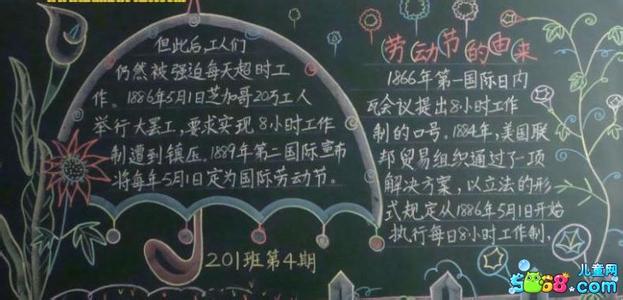 但此后,工人们
仍然被强迫每天超时工
作。1886年5月1日芝加哥20万工人
举行大罢工,要求实现8小时工作
制遭到镇压。1889年第二国际宣布
将每年5月1日定为国际劳动节。
201班第4期
劳动节的由来
1866年第一国际日内
瓦会议提出8小时工作
制的口号。1884年,美国联
邦贸易组织通过了一项
解决方案,以立法的形
式规定从1886年5月1日开始
执行每日8小时工作制,
儿童网
5068.com